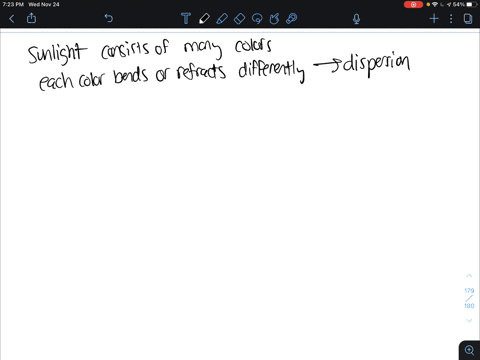 7:23 PM Wed Nov 24
54%
sunlight consists of many colors
each color bends or refracts differently → dispersion
179
/
180